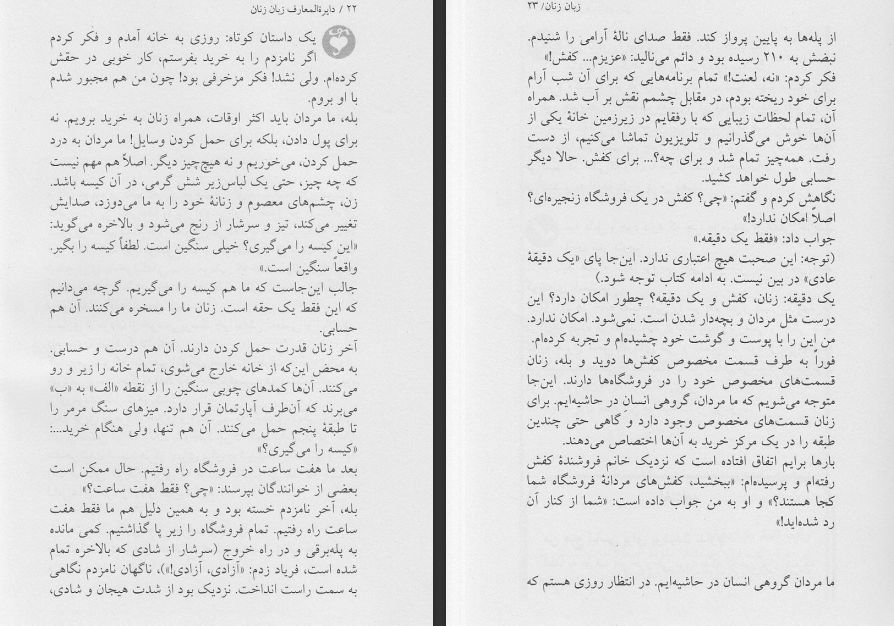 ۲۲ / دایرةالمعارف زبان زنان
یک داستان کوتاه: روزی به خانه آمدم و فکر کردم
اگر نامزدم را به خرید بفرستم، کار خوبی در حقش
کرده‌ام. ولی نشد! فکر مزخرفی بود! چون من هم مجبور شدم
با او بروم.
بله، ما مردان باید اکثر اوقات، همراه زنان به خرید برویم. نه
برای پول دادن، بلکه برای حمل کردن وسایل! ما مردان به درد
حمل کردن، می‌خوریم و نه هیچ‌چیز دیگر. اصلاً هم مهم نیست
که چه چیز، حتی یک لباس‌زیر شش گرمی، در آن کیسه باشد.
زن، چشم‌های معصوم و زنانهٔ خود را به ما می‌دوزد، صدایش
تغییر می‌کند، تیز و سرشار از رنج می‌شود و بالاخره می‌گوید:
«این کیسه را می‌گیری؟ خیلی سنگین است. لطفاً کیسه را بگیر.
واقعاً سنگین است.»
جالب این‌جاست که ما هم کیسه را می‌گیریم. گرچه می‌دانیم
که این فقط یک حقه است. زنان ما را مسخره می‌کنند. آن هم
حسابی.
آخر زنان قدرت حمل کردن دارند. آن هم درست و حسابی.
به محض این‌که از خانه خارج می‌شوی، تمام خانه را زیر و رو
می‌کنند. آن‌ها کمدهای چوبی سنگین را از نقطه «الف» به «ب»
می‌برند که آن‌طرف آپارتمان قرار دارد. میزهای سنگ مرمر را
تا طبقهٔ پنجم حمل می‌کنند. آن هم تنها، ولی هنگام خرید...:
«کیسه را می‌گیری؟»
بعد ما هفت ساعت در فروشگاه راه رفتیم. حال ممکن است
بعضی از خوانندگان بپرسند: «چی؟ فقط هفت ساعت؟»
بله، آخر نامزدم خسته بود و به همین دلیل هم ما فقط هفت
ساعت راه رفتیم. تمام فروشگاه را زیر پا گذاشتیم. کمی مانده
به پله‌برقی و در راه خروج (سرشار از شادی که بالاخره تمام
شده است، فریاد زدم: «آزادی، آزادی!»)، ناگهان نامزدم نگاهی
به سمت راست انداخت. نزدیک بود از شدت هیجان و شادی،
زبان زنان/ ۲۳
از پله‌ها به پایین پرواز کند. فقط صدای نالهٔ آرامی را شنیدم.
نبضش به ۲۱۰ رسیده بود و دائم می‌نالید: «عزیزم... کفش!»
فکر کردم: «نه، لعنت!» تمام برنامه‌هایی که برای آن شب آرام
برای خود ریخته بودم، در مقابل چشمم نقش بر آب شد. همراه
آن، تمام لحظات زیبایی که با رفقایم در زیرزمین خانهٔ یکی از
آن‌ها خوش می‌گذرانیم و تلویزیون تماشا می‌کنیم، از دست
رفت. همه‌چیز تمام شد و برای چه؟... برای کفش. حالا دیگر
حسابی طول خواهد کشید.
نگاهش کردم و گفتم: «چی؟ کفش در یک فروشگاه زنجیره‌ای؟
اصلاً امکان ندارد!»
جواب داد: «فقط یک دقیقه.»
(توجه: این صحبت هیچ اعتباری ندارد. این‌جا پای «یک دقیقهٔ
عادی» در بین نیست. به ادامه کتاب توجه شود.)
یک دقیقه: زنان، کفش و یک دقیقه؟ چطور امکان دارد؟ این
درست مثل مردان و بچه‌دار شدن است. نمی‌شود. امکان ندارد.
من این را با پوست و گوشت خود چشیده‌ام و تجربه کرده‌ام.
فوراً به طرف قسمت مخصوص کفش‌ها دوید و بله، زنان
قسمت‌های مخصوص خود را در فروشگاه‌ها دارند. این‌جا
متوجه می‌شویم که ما مردان، گروهی انسان در حاشیه‌ایم. برای
زنان قسمت‌های مخصوص وجود دارد و گاهی حتی چندین
طبقه را در یک مرکز خرید به آن‌ها اختصاص می‌دهند.
بارها برایم اتفاق افتاده است که نزدیک خانم فروشندهٔ کفش
رفته‌ام و پرسیده‌ام: «ببخشید، کفش‌های مردانهٔ فروشگاه شما
کجا هستند؟» و او به من جواب داده است: «شما از کنار آن
رد شده‌اید!»
ما مردان گروهی انسان در حاشیه‌ایم. در انتظار روزی هستم که